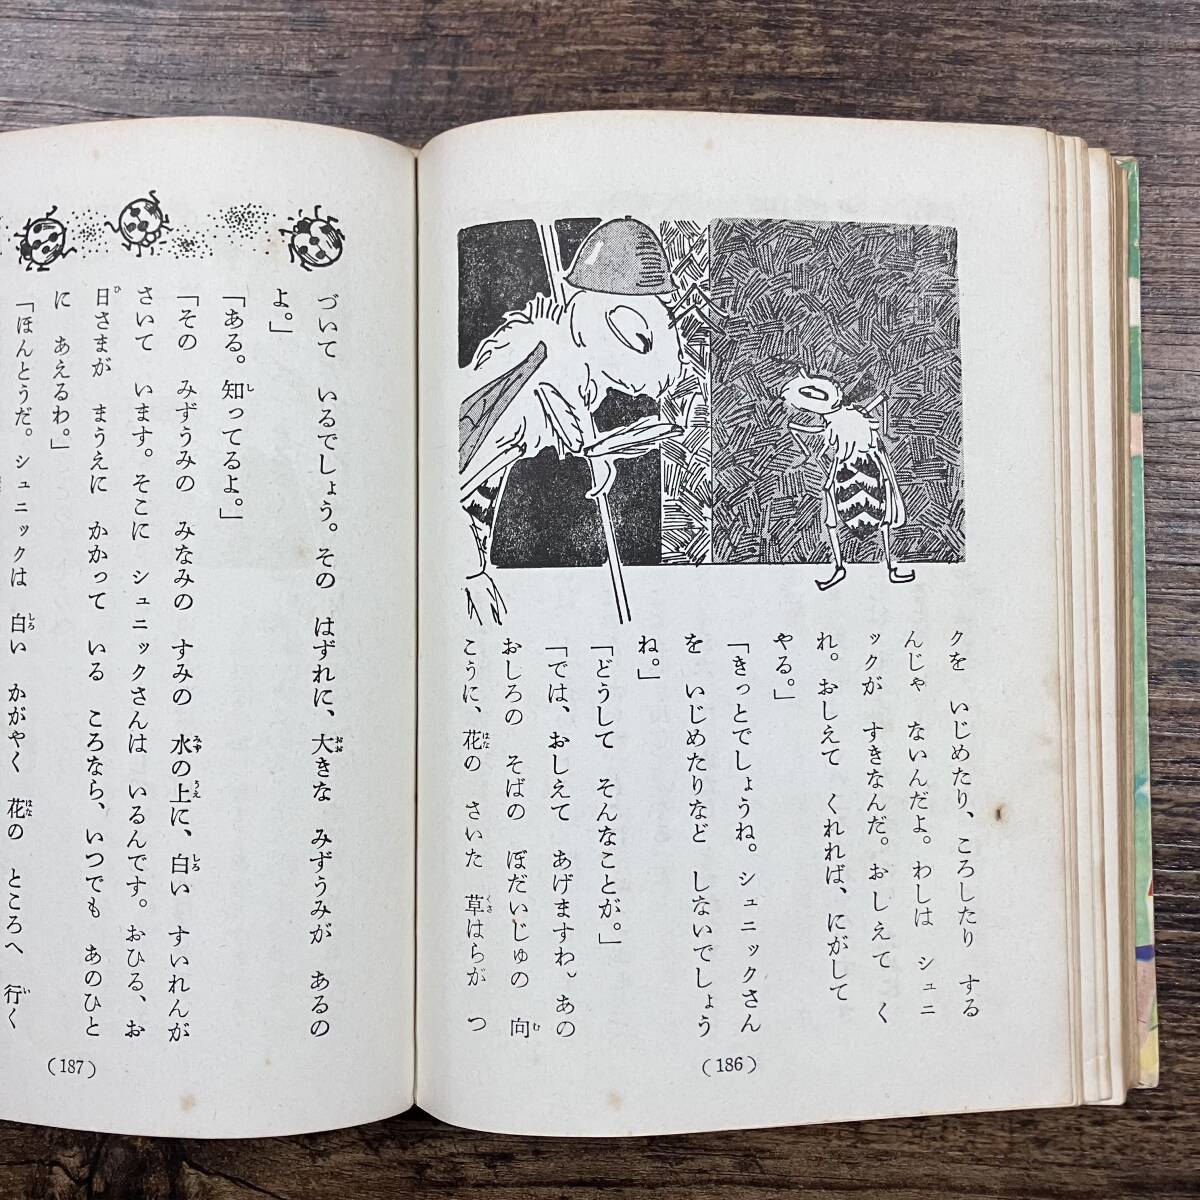 クを いじめたり、ころしたり する
んじゃ ないんだよ。わしは シュニ
ックが すきなんだ。おしえて く
れ。おしえて くれれば、にがして
やる。」
「きっとでしょうね。シュニックさん
を いじめたりなど しないでしょう
ね。」
「どうして そんなことが。」
「では、おしえて あげますわ。あの
おしろの そばの ぼだいじゅの 向
こうに、花の さいた 草はらが つ
(186)
づいて いるでしょう。その はずれに、大きな みずうみが あるの
よ。」
「ある。知ってるよ。」
「その みずうみの みなみの すみの 水の上に、白い すいれんが
さいて います。そこに シュニックさんは いるんです。おひる、お
日さまが まうえに かかって いる ころなら、いつでも あのひと
に あえるわ。」
「ほんとうだ。シュニックは 白い かがやく 花の ところへ 行く
(187)